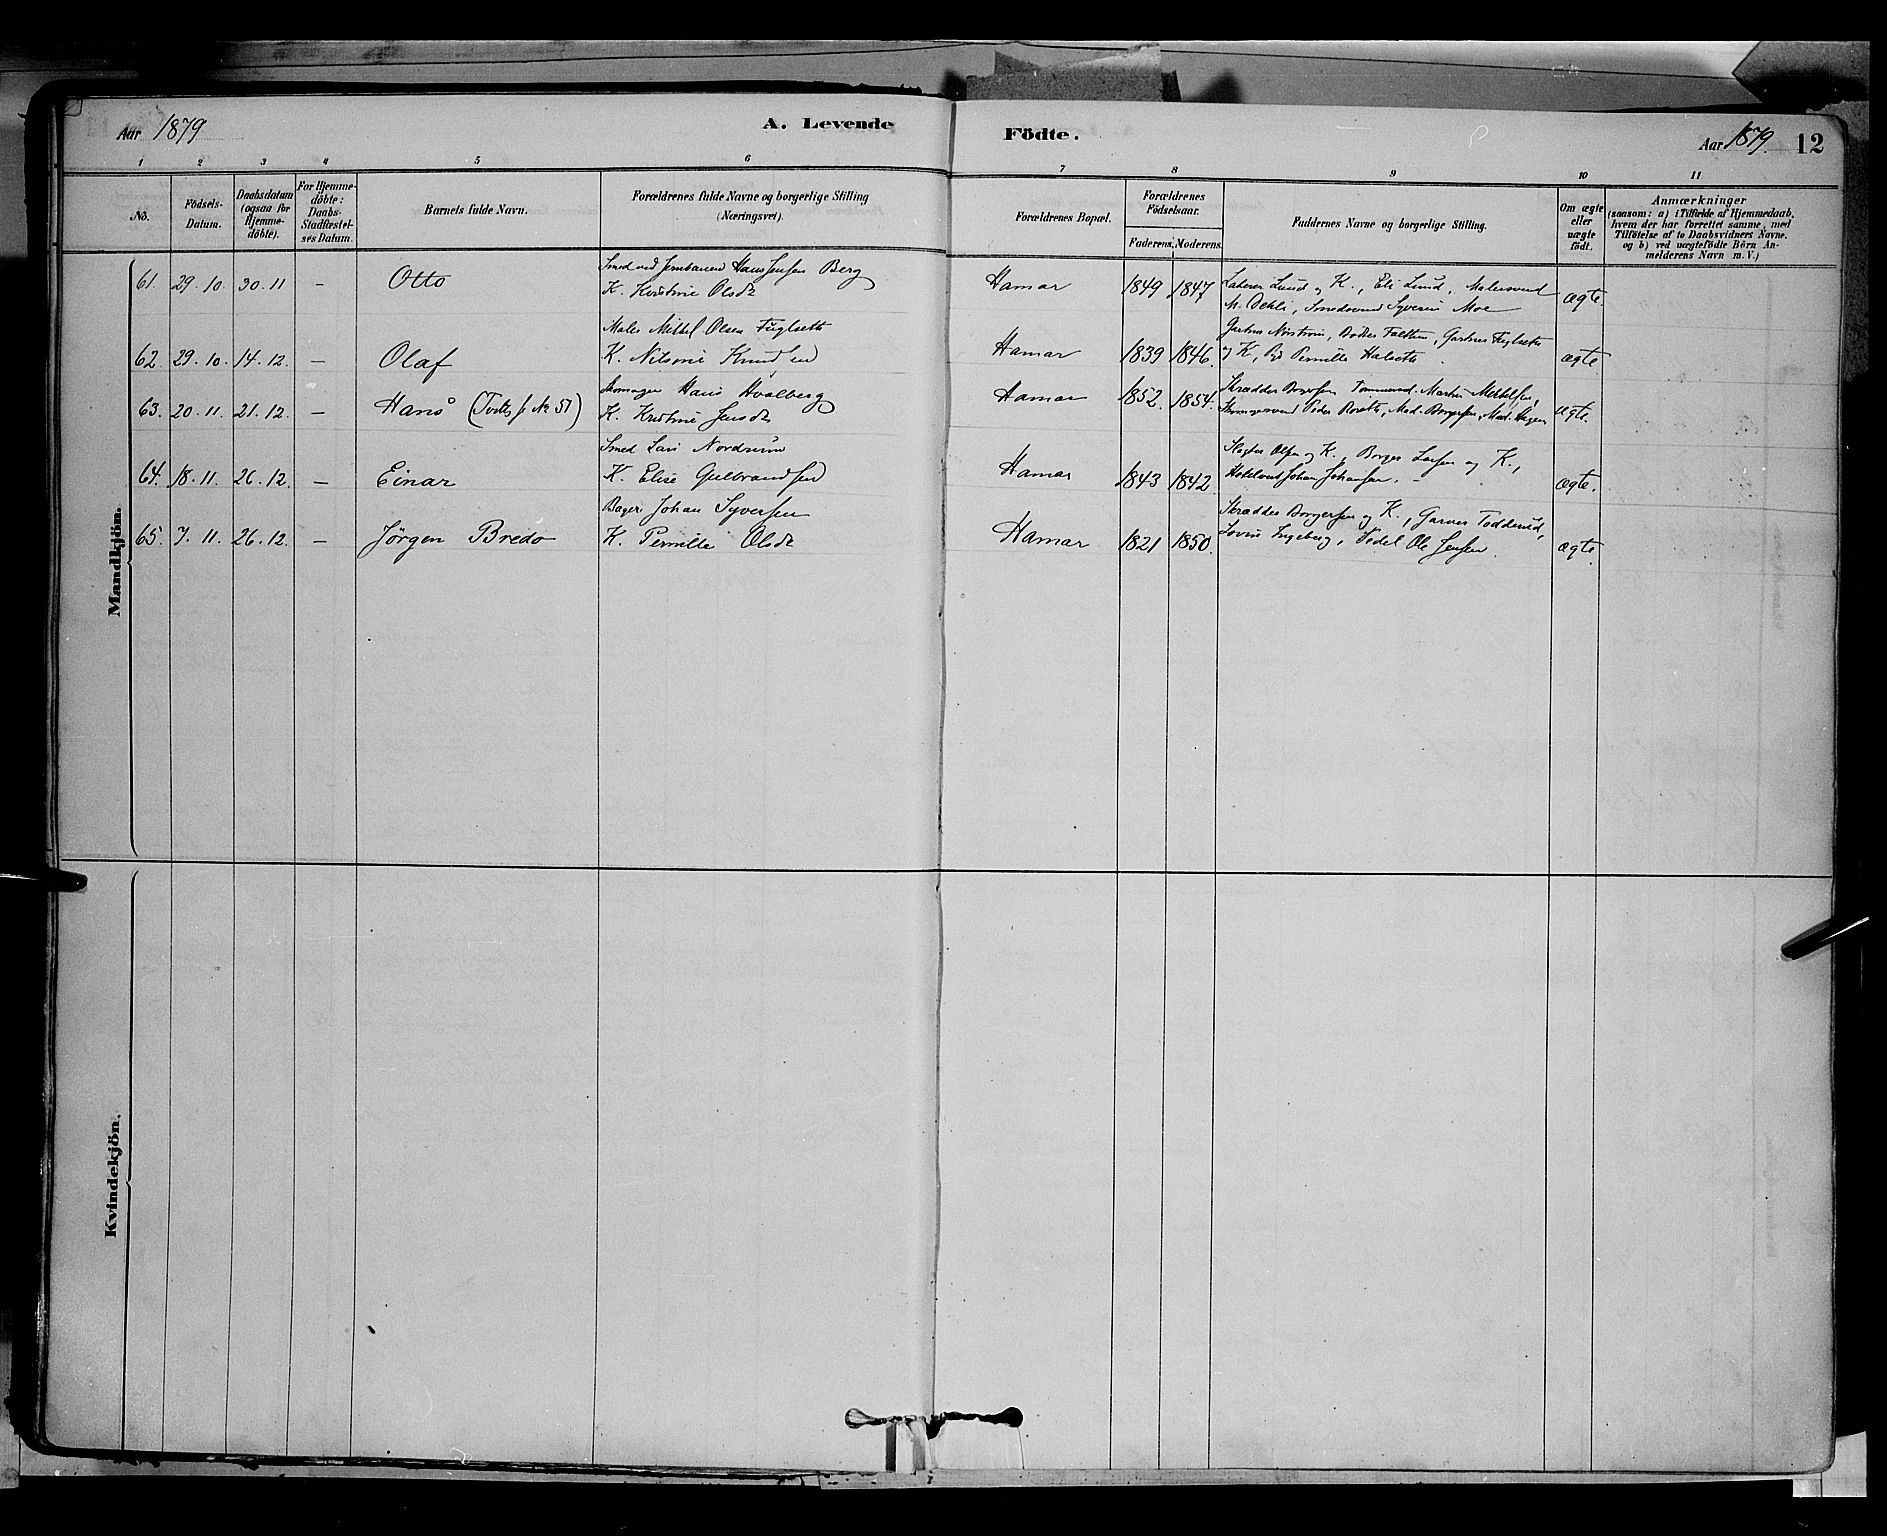 Aar 1879
A. Levende Födte.
Aar 1879. 12
1 2 3 4 5 6 7 8 9 10 11
No.
Födsels-Datum.
Daabsdatum (ogsaa for Hjemme-döbte).
For Hjemme-döbte: Daabs-Stadfæstel-ses Datum.
Barnets fulde Navn.
Forældrenes fulde Navne og borgerlige Stilling (Næringsvei).
Forældrenes Bopæl.
Forældrenes Födselsaar.
Faderens. Moderens.
Faddernes Navne og borgerlige Stilling.
Om ægte eller uægte født.
Anmærkninger
(saasom: a) i Tilfælde af Hjemmedaab,
hvem der har forrettet samme, med
Tilföielse af to Daabsvidners Navne.
og b) ved uægtefödte Börn An-
melderens Navn m. V.)
Mandkjön.
61. 29. 10. 30. 11 – Otto
Smed ved Jernbanen Hans Jensen Berg
K. Kristine Olsdr
Hamar 1849 1847
Lund og K., Eli Lund, Malersvend
M. Dehli, Smedsvend Syverin Moe
ægte.
62. 29. 10. 14. 12. – Olaf
Maler Mikkel Olsen Fuglseth
K. Nilsine Knudsen
Hamar 1839 1846.
Gartner Fuglseth
og K, Pernille Halseth
ægte.
63. 20. 11. 21. 12. – Hans (Tvilling f. No 51)
Skomager Hans Hvalberg
K. Kristine Jensdr
Hamar 1852. 1854.
Skrædder Borgersen Martin Mikkelsen,
Skomagersvend Peder Mad. Borgersen, Mad.
ægte.
64. 18. 11. 26. 12. – Einar
Smed Lars Nordrum
K. Elise Gulbrandsen
Hamar 1843 1842
Slagter Olsen og K., Borger Larsen og K.,
Johan Johansen. –
ægte.
65. 7. 11. 26. 12. – Jörgen Bredo
Bager Johan Syversen
K. Pernille Olsdr
Hamar 1821 1850.
Skrædder Borgersen og K., Garver Todderud,
Lovise Ingeberg, Pedel Ole Jensen.
ægte.
Kvindekjön.